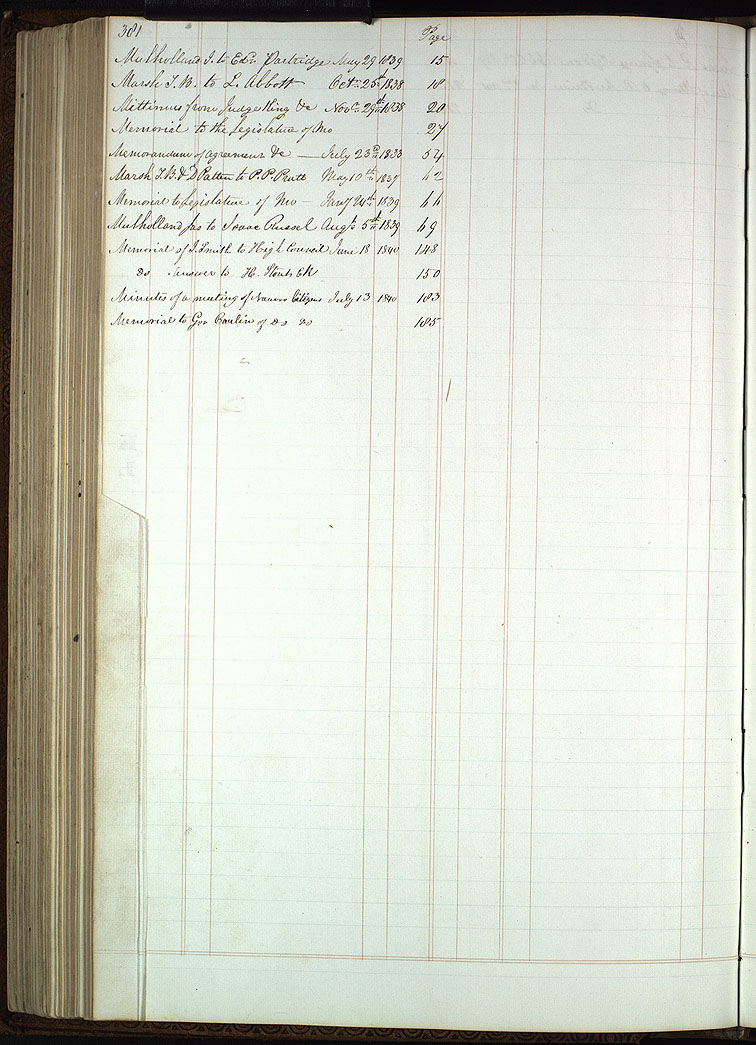 381 Page
Mulholland J. to Edwd Partridge May 29 1839 15
Marsh T. B. to L. Abbott Octr 25th 1838 18
Mittimus from Judge King &c Novr 29th 1838 20
Memorial to the Legislature of Mo 27
Memorandum of agreement &c — July 23rd 1833 54
Marsh T. B. & D Patten to P. P. Pratt May 10th 1837 62
Memorial to Legislature of Mo — Jany 24th 1839 66
Mulholland Jas to Isaac Russel Augt 5th 1839 69
Memorial of J. Smith to High Council June 18 1840 148
do Answer to H. 150
Minutes of a meeting of Nauvoo Citizens July 13 1840 183
Memorial to Gov Carlin of do do 185